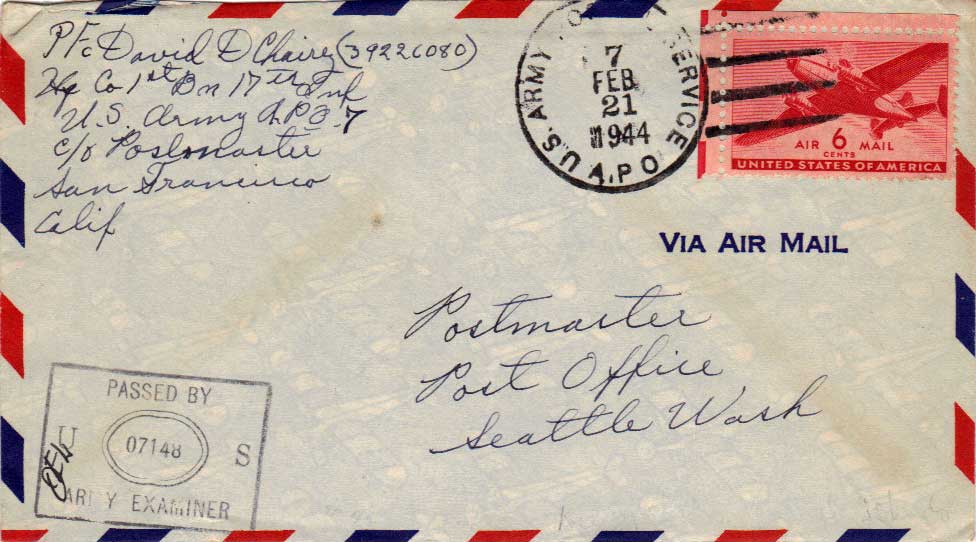 Pfc David D Chairez (39226080)
Hq Co 1st Bn 17th Inf
U.S. Army A.P.O. 7
c/o Postmaster
San Francisco
Calif
U.S. ARMY SERVICE
7
FEB
21
1944
A.P.O
AIR 6 MAIL
CENTS
UNITED STATES OF AMERICA
VIA AIR MAIL
Postmaster
Post Office
Seattle Wash
PASSED BY
U 07148 S
ARMY EXAMINER